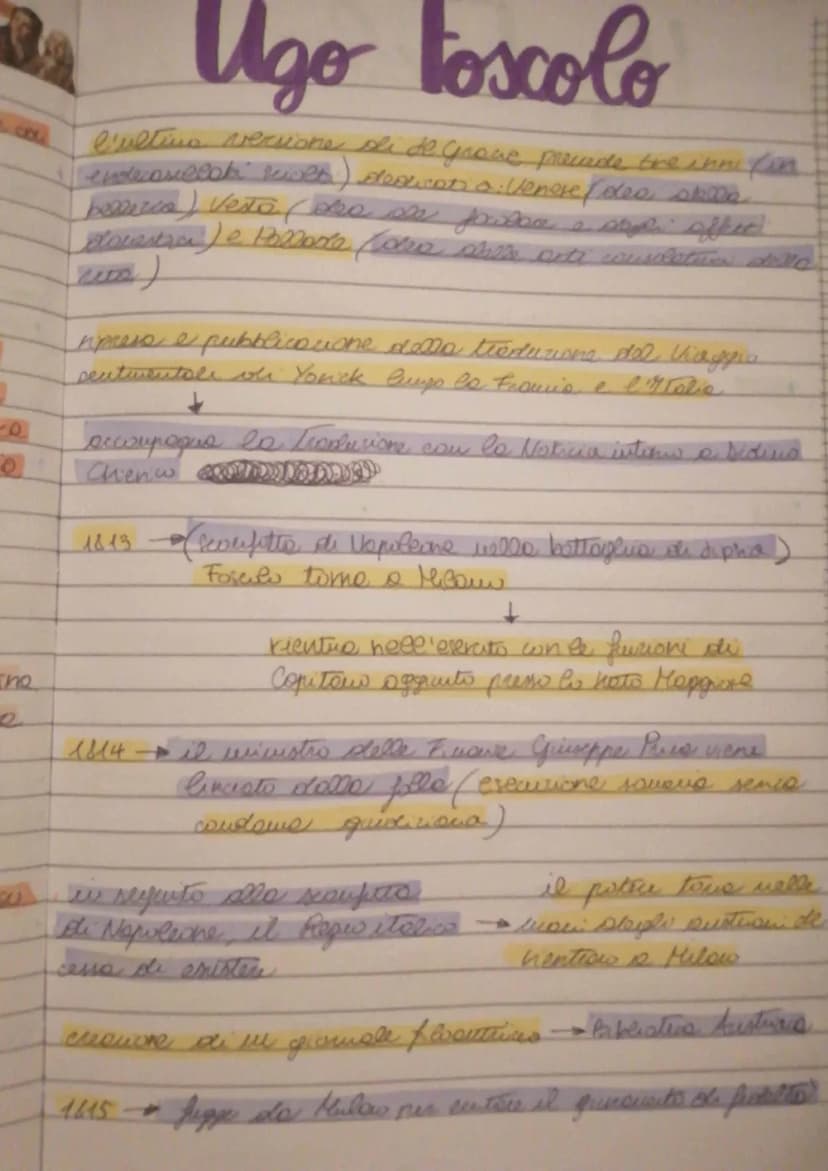 Ugo Foscolo
l'ultima versione di de Grazie prevede tre inni (in
endecasillabi sciolti) dedicati a: Venere (dea della
bellezza) Vesta (dea del focolare e degli affetti
domestici) e Pallade (dea delle arti consolatrici della
vita)
ripresa e pubblicazione della traduzione del Viaggio
sentimentale di Yorick lungo la Francia e l'Italia
accompagna la traduzione con la Notizia intorno a Didimo
Chierico
1813 → (sconfitta di Napoleone nella battaglia di Lipsia)
Foscolo torna a Milano
rientra nell'esercito con le funzioni di
Capitano aggiunto presso lo Stato Maggiore
1814 → il ministro delle Finanze Giuseppe Prina viene
linciato dalla folla (esecuzione sommaria senza
condanna giudiziaria)
in seguito alla sconfitta
di Napoleone, il Regno italico →
cessa di esistere
il potere torna nelle
mani degli austriaci che
rientrano a Milano
creazione di un giornale filoaustriaco → Biblioteca Austriaca
1815 → fugge da Milano per evitare il giuramento di fedeltà